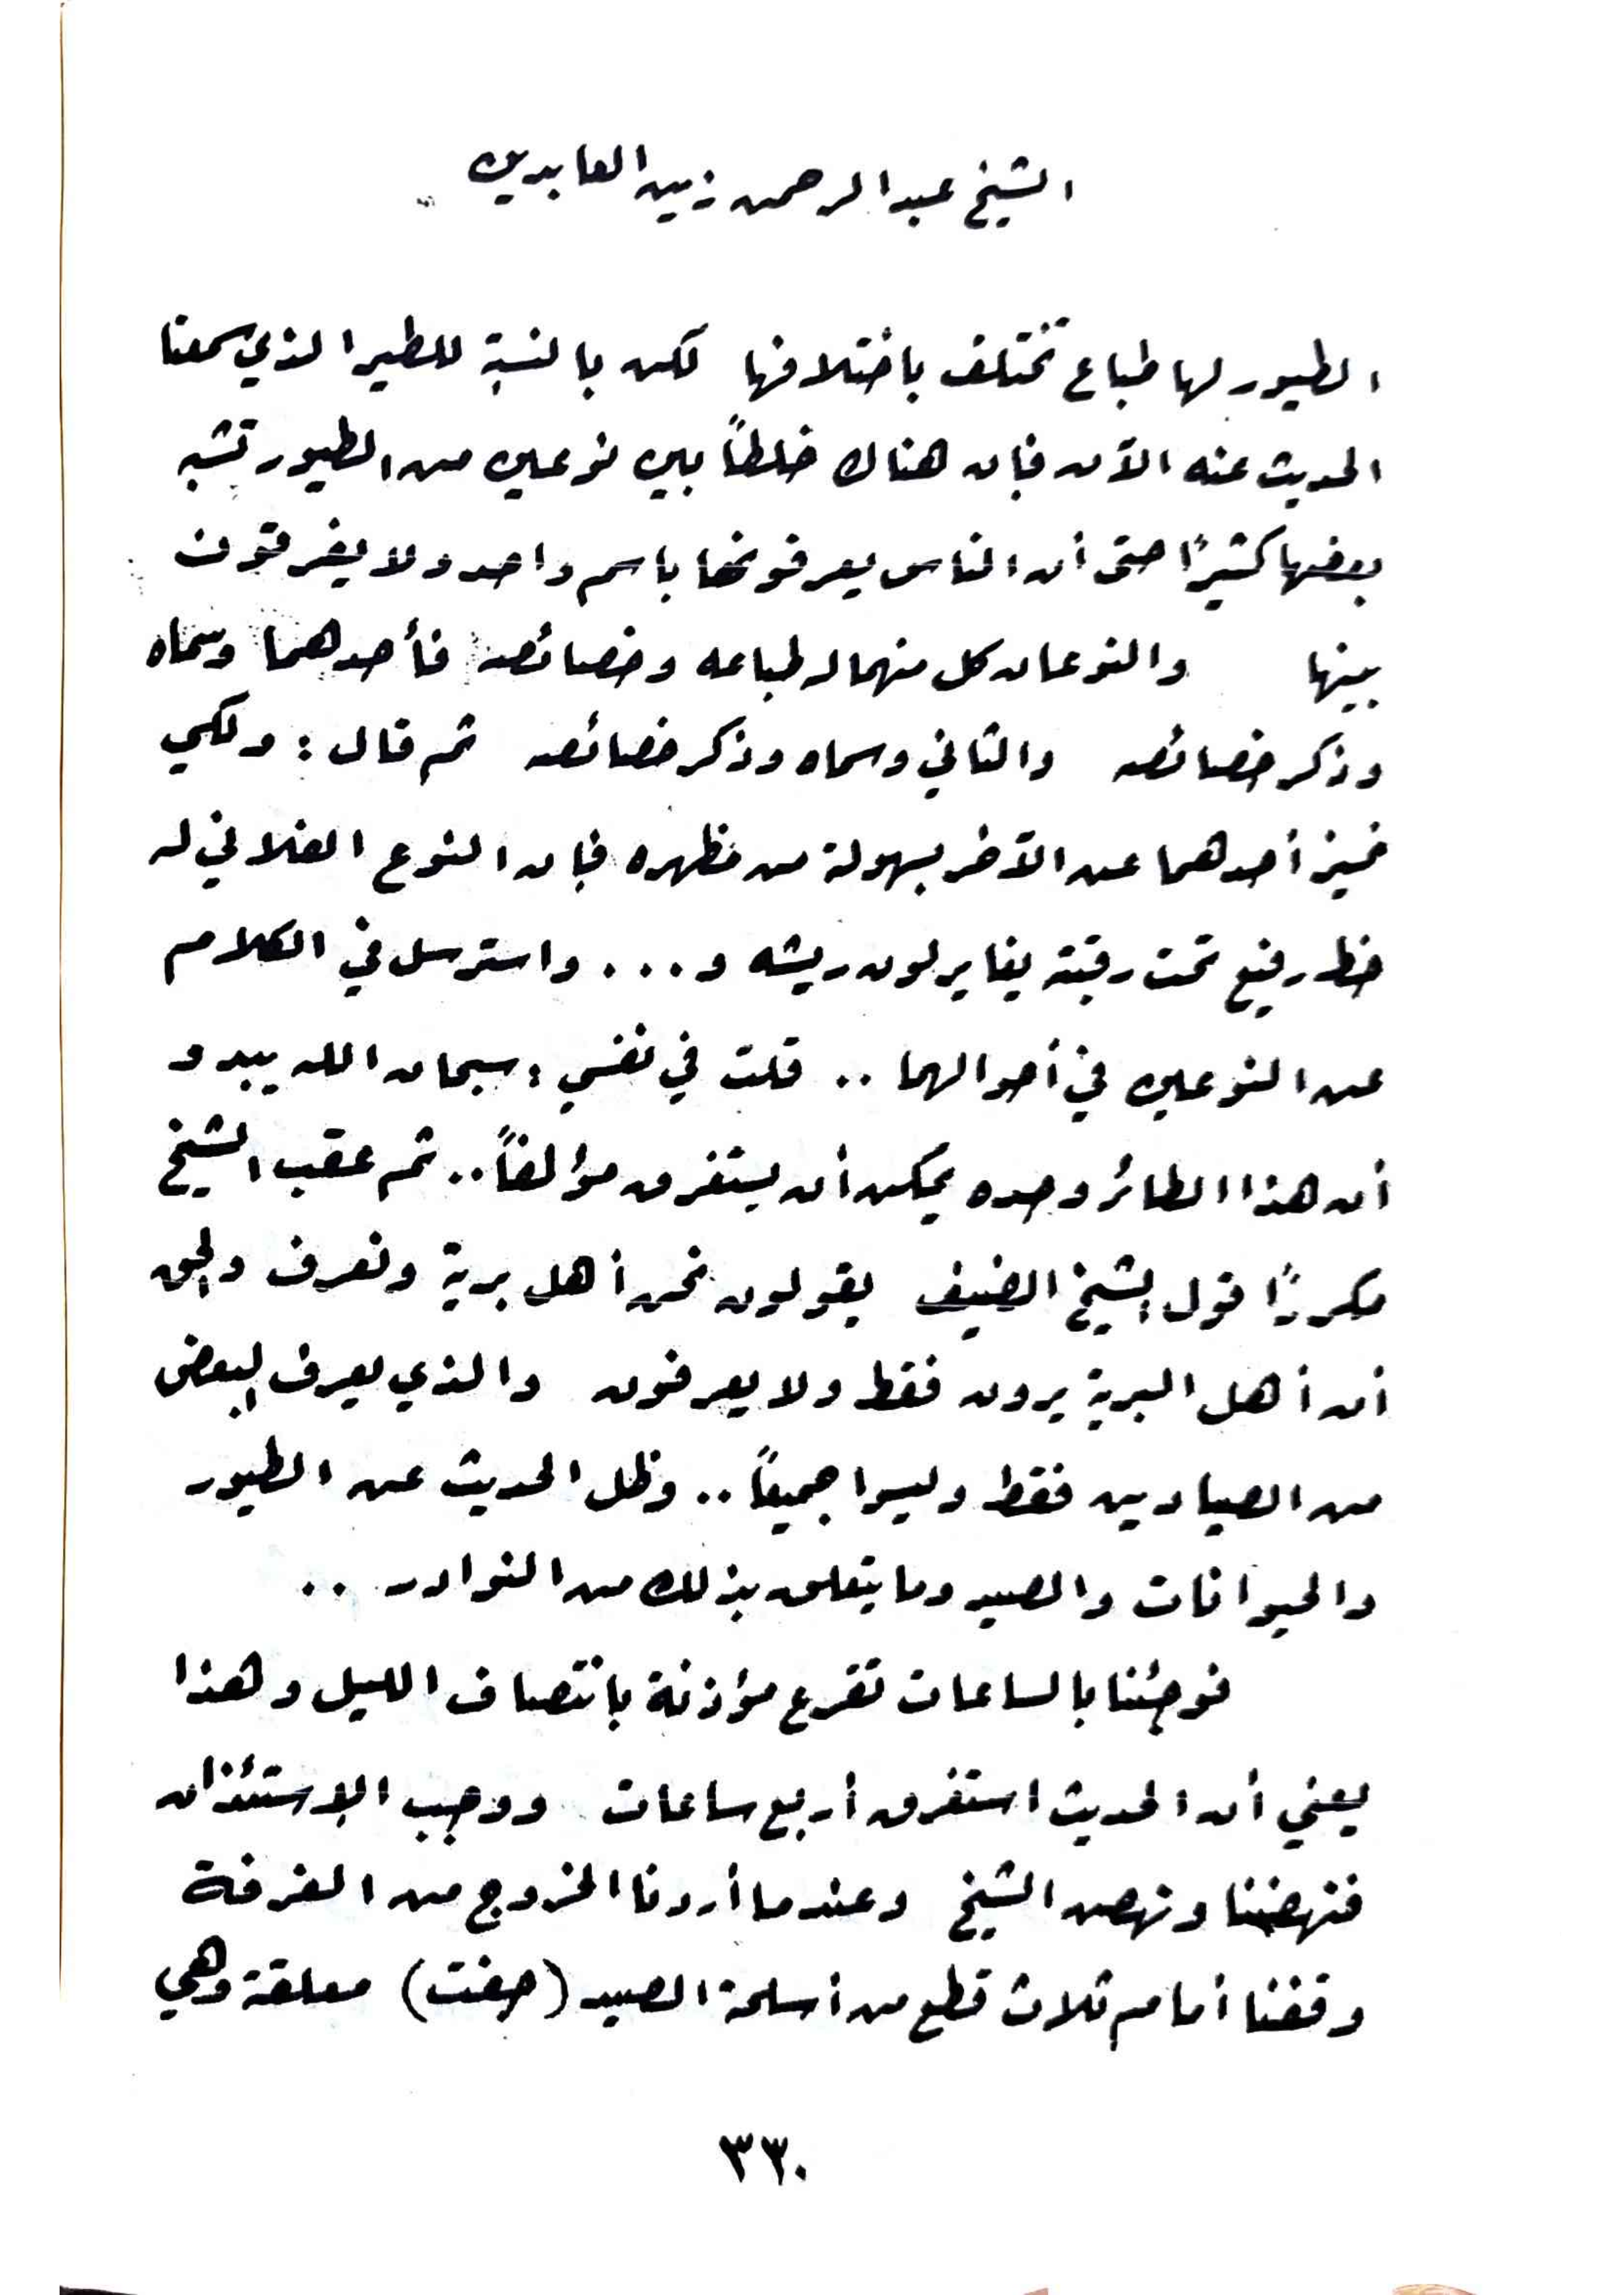 الشيخ عبدالرحمن زين العابدين
الطيور لها طباع تختلف باختلافها لكن بالنسبة للطير الذي سمعنا
الحديث عنه الآن فإن هناك خلطاً بين نوعين من الطيور تشبه
بعضها كثيرًا حتى أن الناس يعرفونها باسم واحد ولا يفرقون
بينها والنوعان كل منهما له طباعه وخصائصه فأحدهما وسماه
وذكر خصائصه والثاني وسماه وذكر خصائصه ثم قال : ولكي
نميز أحدهما عن الآخر بسهولة من مظهره فإن النوع الفلاني له
خط رفيع تحت رقبته يغاير لون ريشه و... واسترسل في الكلام
عن النوعين في أحوالهما .. قلت في نفسي : سبحان الله يبدو
أن هذا الطائر وحده يمكن أن يستغرق مؤلفاً .. ثم عقب الشيخ
مكررًا قول الشيخ الضيف يقولون نحن أهل برية ونعرف والحق
أن أهل البرية يرون فقط ولا يعرفون والذي يعرف البعض
من الصيادين فقط وليسوا جميعاً .. وظل الحديث عن الطيور
والحيوانات والصيد وما يتعلق بذلك من النوادر ..
فوجئنا بالساعات تقرع مؤذنة بانتصاف الليل وهذا
يعني أن الحديث استغرق أربع ساعات ووجب الإستئذان
فنهضنا ونهض الشيخ وعندما أردنا الخروج من الغرفة
وقفنا أمام ثلاث قطع من أسلحة الصيد (جفت) معلقة وهي
٣٣٠